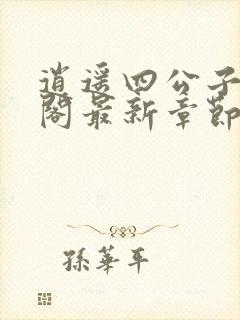 逍遥四公子
阁最新章節
孫華平